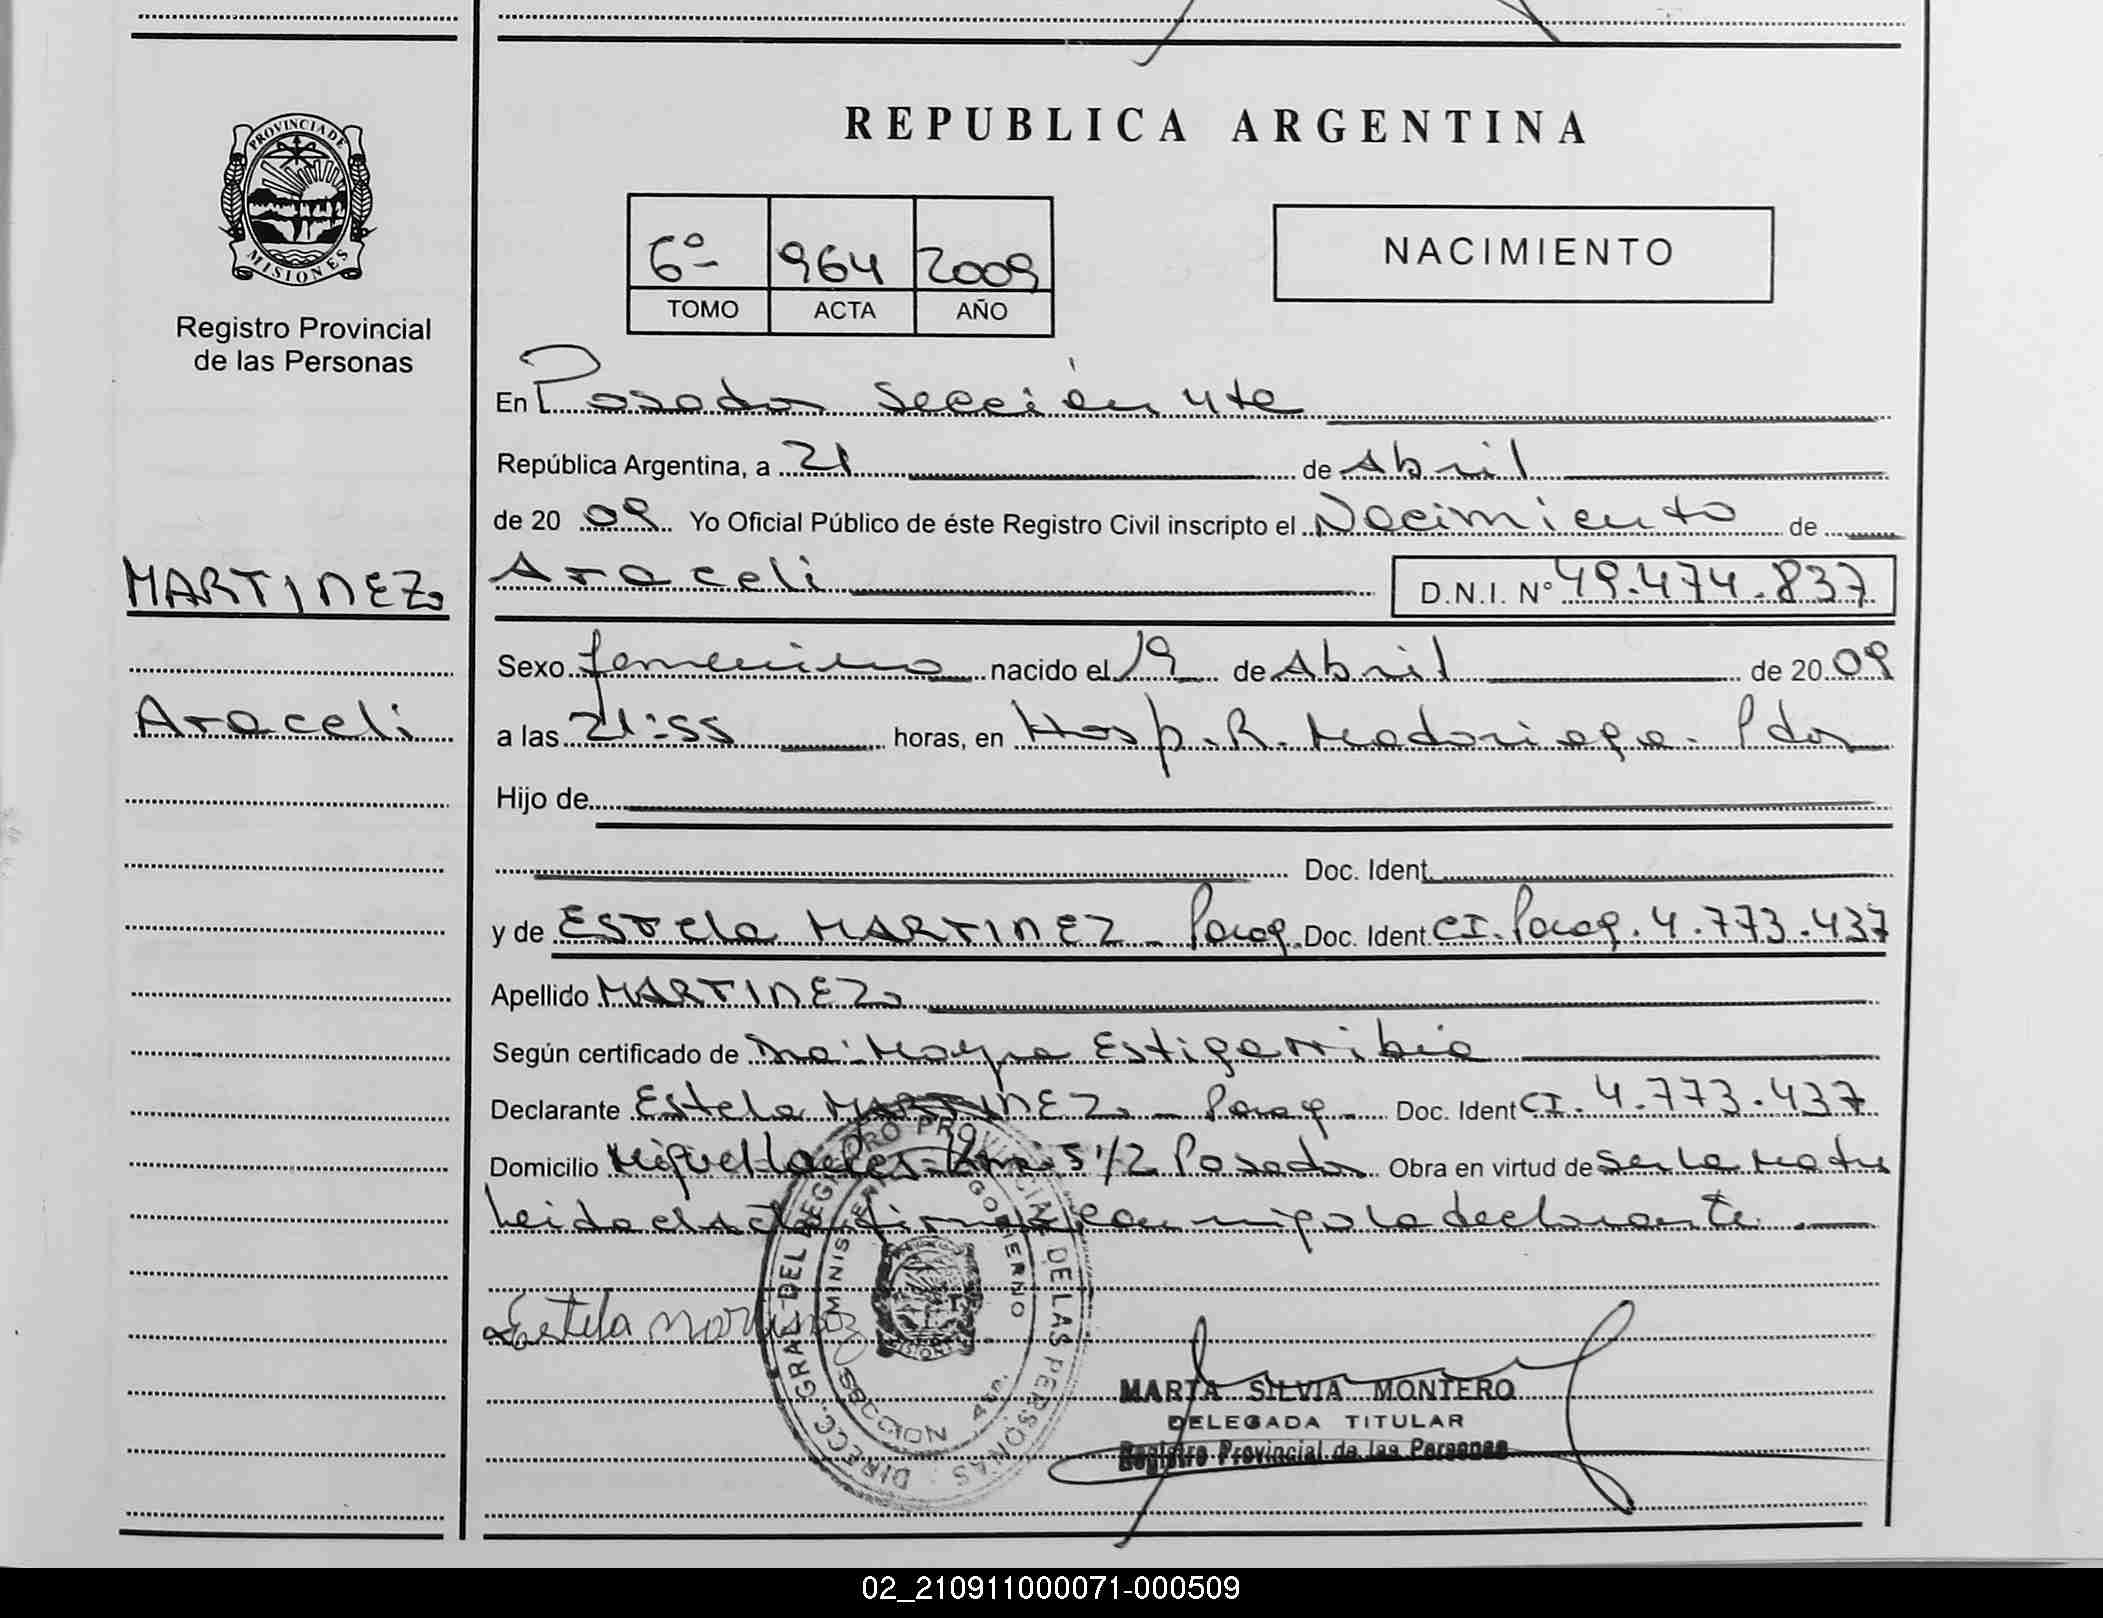 PROVINCIA DE
MISIONES
Registro Provincial
de las Personas
MARTINEZ
Araceli
REPUBLICA ARGENTINA
6º 964 2009
TOMO ACTA AÑO
NACIMIENTO
En Posadas Sección 4ta
República Argentina, a 21 de Abril
de 20 09 Yo Oficial Público de éste Registro Civil inscripto el Nacimiento de
Araceli D.N.I. Nº 49.474.837
Sexo femenino nacido el 19 de Abril de 20 09
a las 21:55 horas, en Hosp. R. Madariaga. Pdas
Hijo de
Doc. Ident.
y de Estela MARTINEZ - Parag. Doc. Ident. CI. Parag. 4.773.437
Apellido MARTINEZ
Según certificado de Dra. Mayra Estigarribia
Declarante Estela MARTINEZ - Parag. Doc. Ident CI. 4.773.437
Domicilio Miguel 5 1/2 Posadas Obra en virtud de ser la madre
Leida el acta firma con migo la declarante.
Estela Martinez
DIRECC. GRAL. DEL REGISTRO PROVINCIAL DE LAS PERSONAS
MINISTERIO GOBIERNO
SECCION 4ta.
MARTA SILVIA MONTERO
DELEGADA TITULAR
Registro Provincial de las Personas
02_210911000071-000509